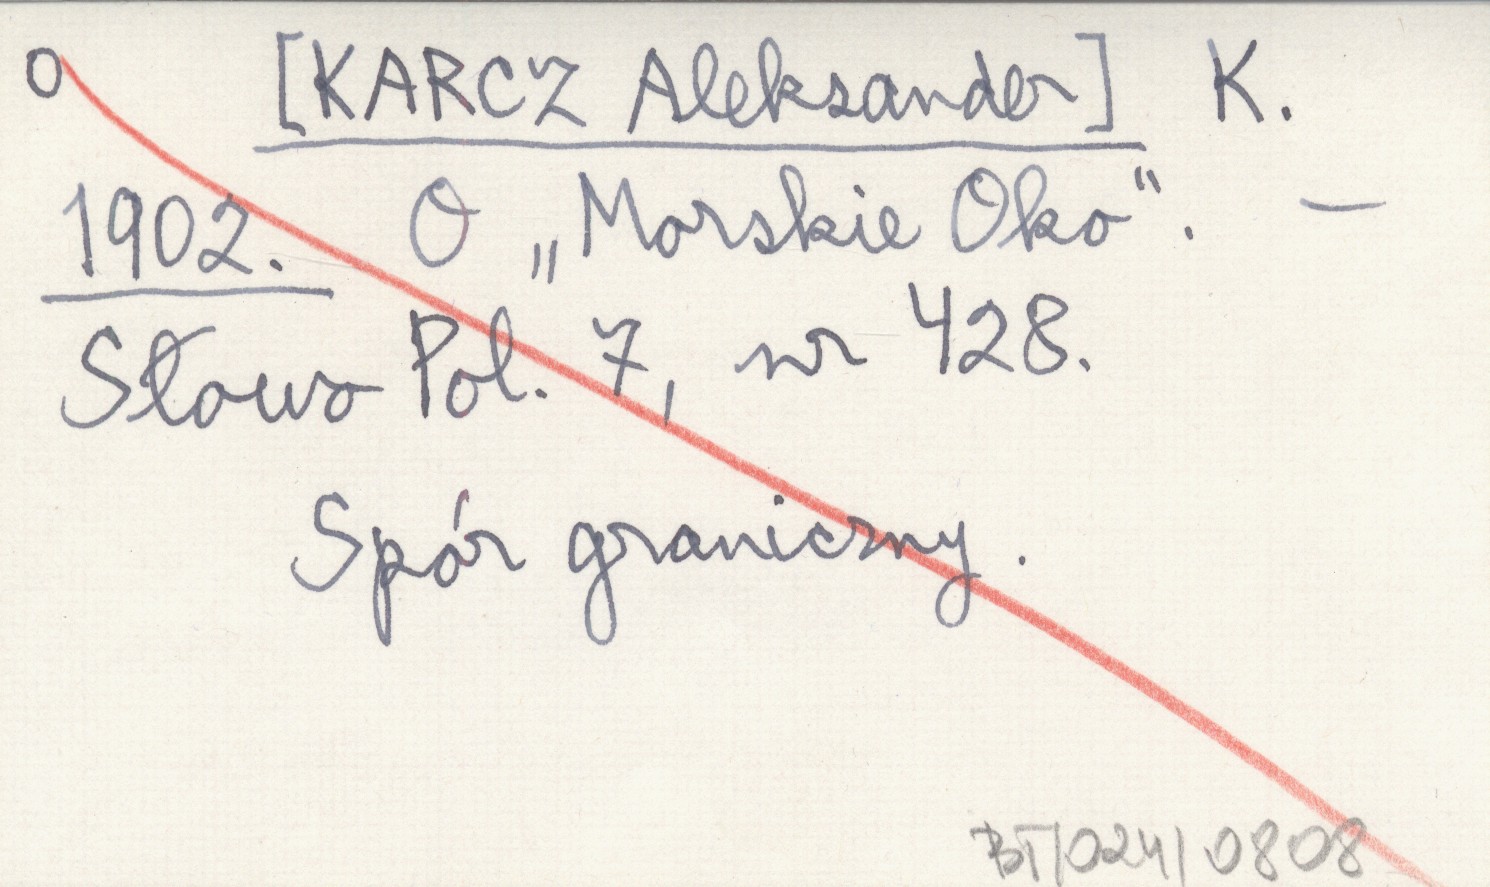 O [KARCZ Aleksander] K.
1902. O „Morskie Oko". —
Słowo Pol. 7, nr 428.
Spór graniczny.
BT/024/0808